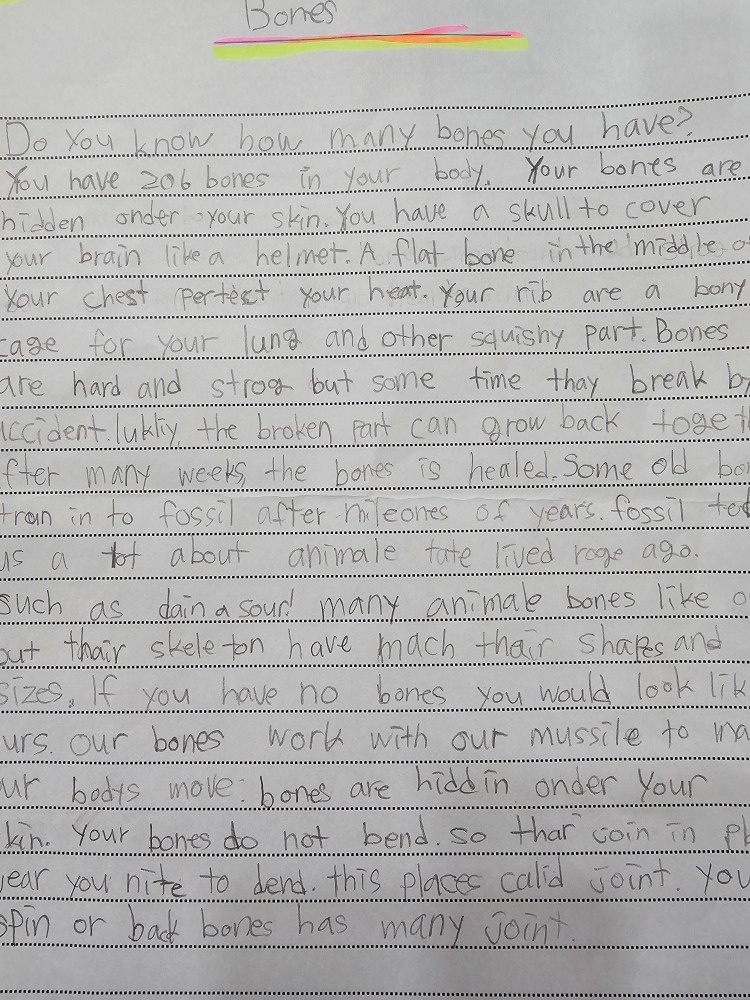 Bones
Do You know how many bones you have?
You have 206 bones in your body. Your bones are
hidden onder your skin. You have a skull to cover
your brain like a helmet. A flat bone in the middle o
Your chest pertect your heat. Your rib are a bony
cage for your lung and other squishy part. Bones
are hard and strog but some time thay break by
accident. lukliy, the broken part can grow back toget
fter many weeks, the bones is healed. Some old bo
tran in to fossil after mileones of years. fossil tell
us a lot about animale tate lived roge ago.
such as dain a sour! many animale bones like o
out thair skeleton have mach thair shapes and
sizes. If you have no bones you would look lik
urs. our bones work with our mussile to ma
ur bodys move. bones are hiddin onder your
kin. Your bones do not bend. so thar coin in pl
ear you nite to dend. this places calid joint. You
spin or back bones has many joint.